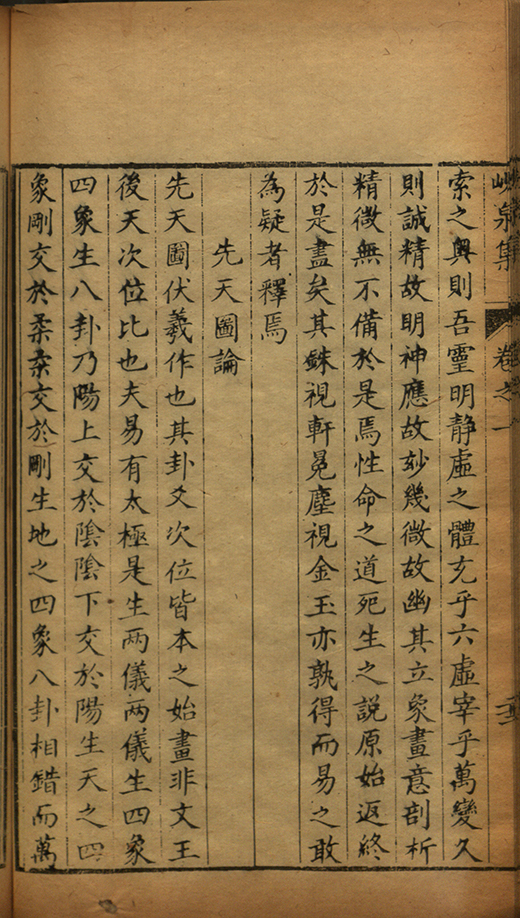 峴泉集 卷之一
索之奧則吾靈明靜虛之體充乎六虛宰乎萬變久
則誠精故明神應故玅幾微故幽其立象盡意剖析
精微無不備於是焉性命之道死生之說原始返終
於是盡矣其銖視軒冕塵視金玉亦孰得而易之敢
為疑者釋焉
先天圖論
先天圖伏羲作也其卦爻次位皆本之始畫非文王
後天次位比也夫易有太極是生两儀两儀生四象
四象生八卦乃陽上交於陰陰下交於陽生天之四
象剛交於柔柔交於剛生地之四象八卦相錯而萬